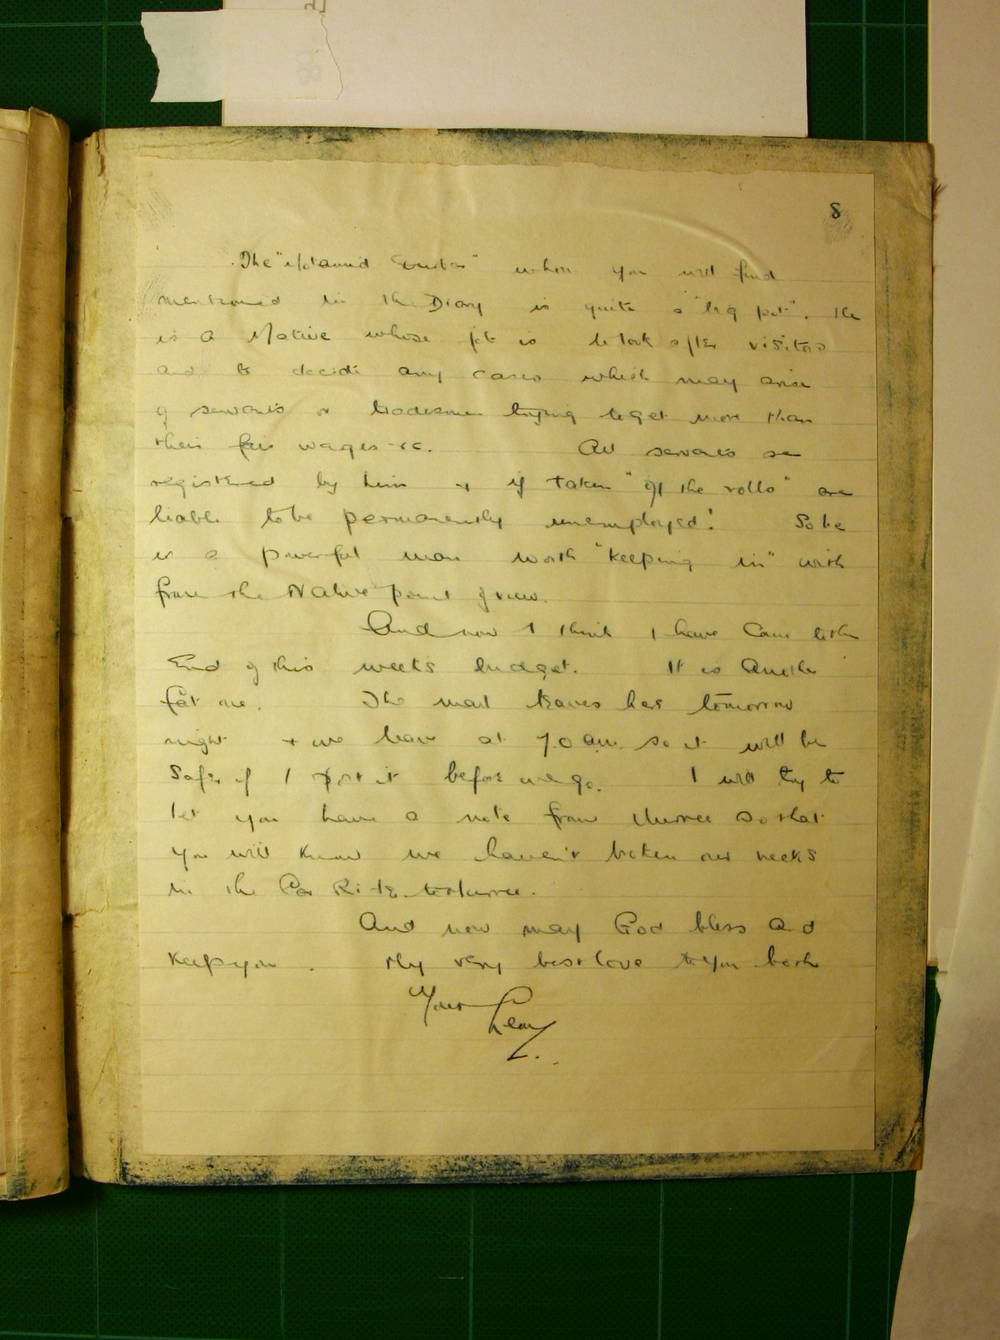 8
The " " whom you will find
mentioned in the Diary is quite a "big pot". He
is a Native whose job is to look after visitors
and to decide any cases which may arise
of servants or tradesmen trying to get more than
their fair wages etc. All servants are
registered by him & if taken "off the rolls" are
liable to be permanently unemployed! So he
is a powerful man worth "keeping in" with
from the Native point of view.
And now I think I have come to the
End of this week's budget. It is Another
fat one. The mail leaves here tomorrow
night & we leave at 7.0 am. so it will be
Safe if I post it before we go. I will try to
let you have a note from Murree so that
you will know we haven't broken our necks
in the Car Ride to Murree.
And now may God bless and
Keep you. My very best love to you both
Your